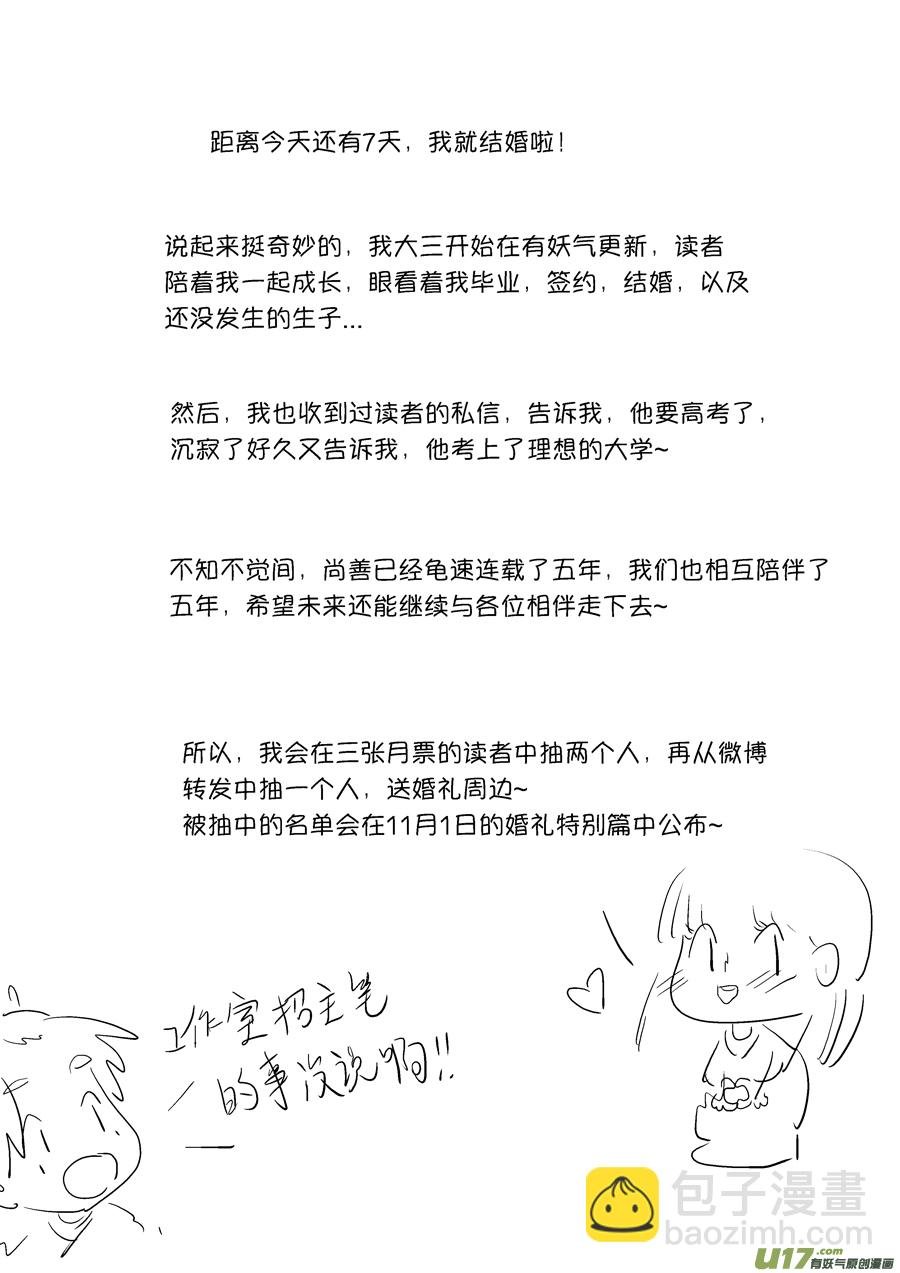 距离今天还有7天，我就结婚啦！
说起来挺奇妙的，我大三开始在有妖气更新，读者
陪着我一起成长，眼看着我毕业，签约，结婚，以及
还没发生的生子...
然后，我也收到过读者的私信，告诉我，他要高考了，
沉寂了好久又告诉我，他考上了理想的大学~
不知不觉间，尚善已经龟速连载了五年，我们也相互陪伴了
五年，希望未来还能继续与各位相伴走下去~
所以，我会在三张月票的读者中抽两个人，再从微博
转发中抽一个人，送婚礼周边~
被抽中的名单会在11月1日的婚礼特别篇中公布~
工作室招主笔
的事没说啊!!
包子漫畫
baozimh.com
U17.com
有妖气原创漫画